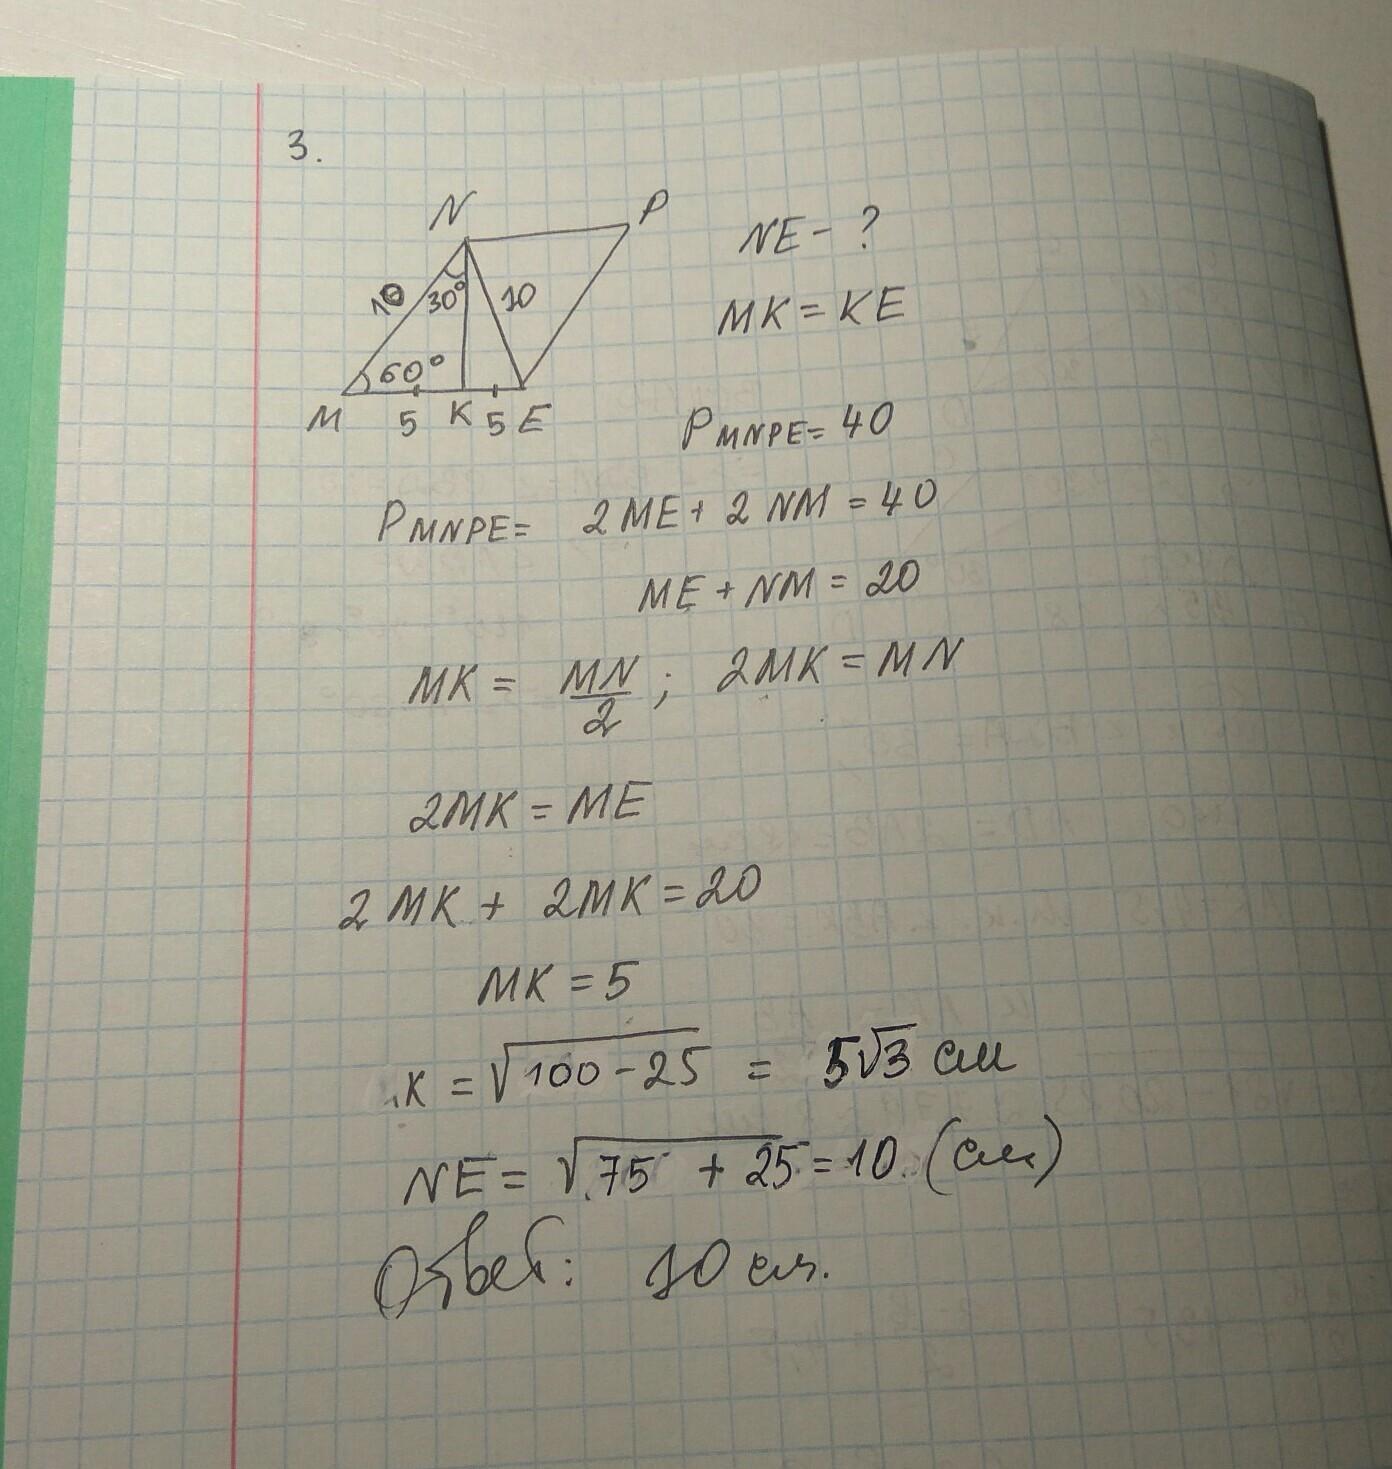 3.
N P
NE - ?
10 30° 10
MK = KE
60°
M 5 K 5 E
P MNPE = 40
P MNPE = 2ME + 2NM = 40
ME + NM = 20
MK = MN/2 ; 2MK = MN
2MK = ME
2MK + 2MK = 20
MK = 5
K = √100 - 25 = 5√3 см
NE = √75 + 25 = 10 (см)
Ответ: 10 см.